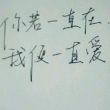 你若一直在
我便一直爱